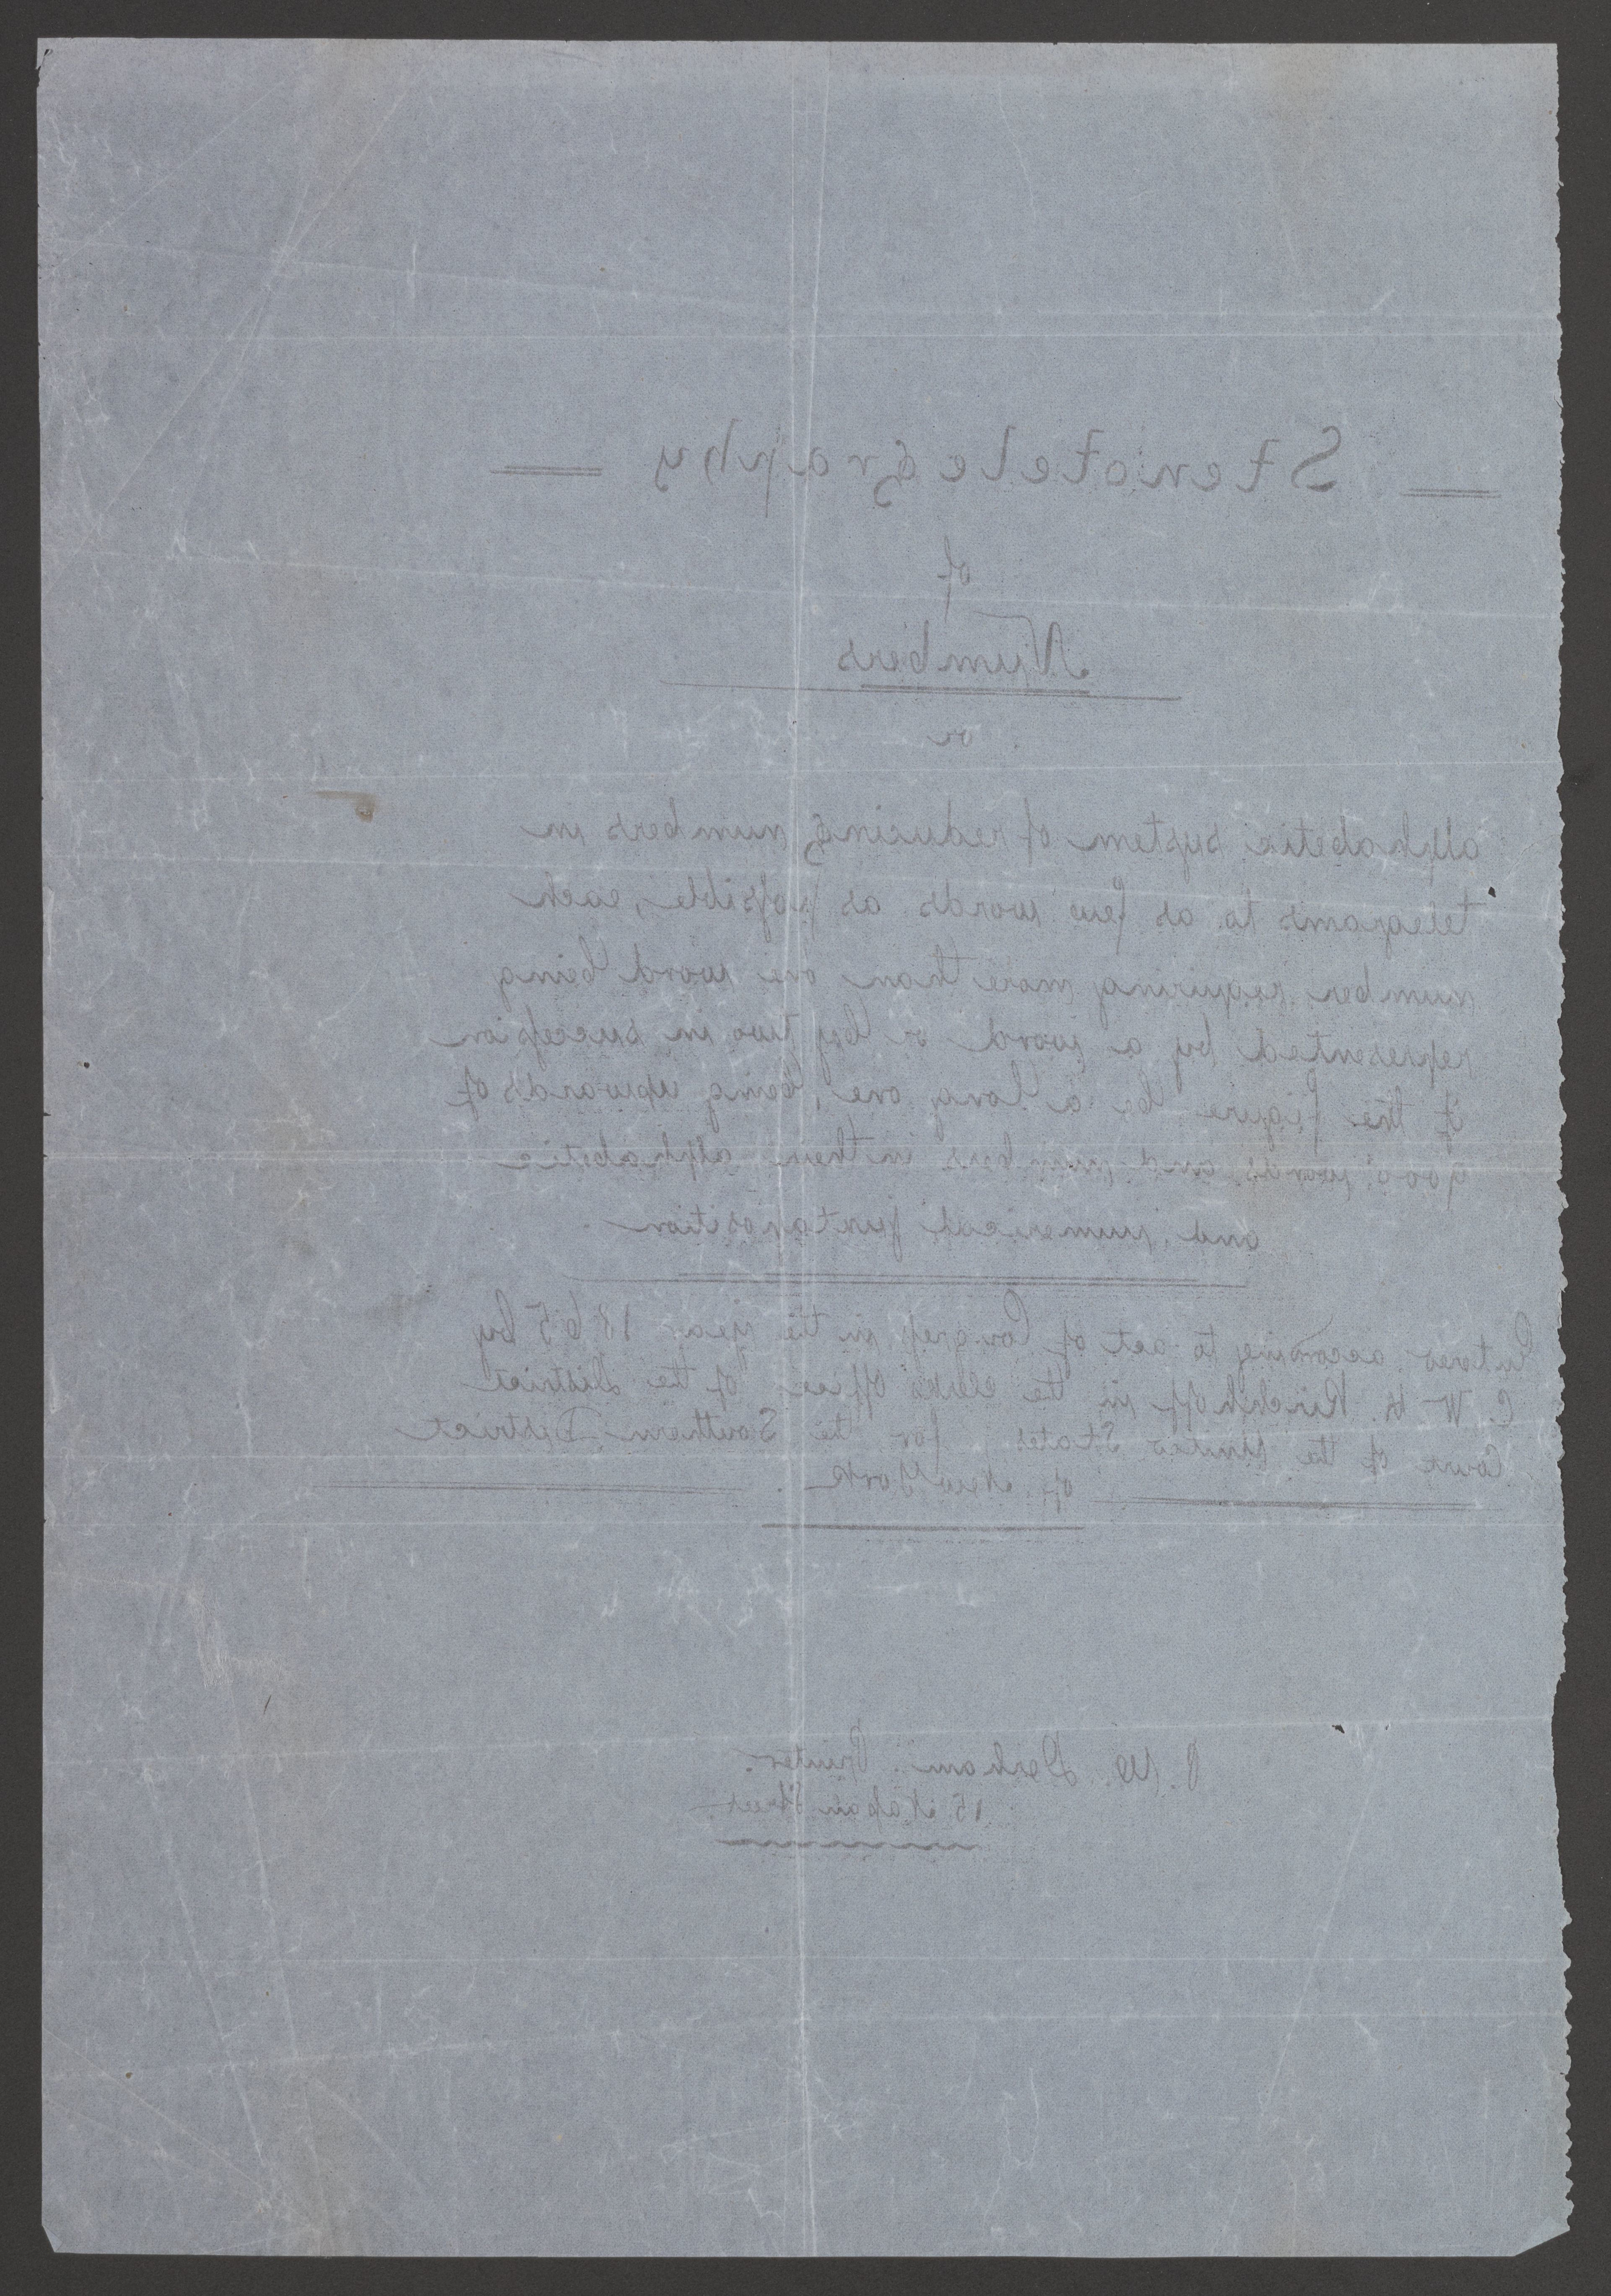 Stenotelegraphy
of
Numbers
or
alphabetic system of reducing numbers in
telegrams to as few words as possible, each
number requiring more than one word being
represented by a word or by two in succession
if the figure be a long one, being upwards of
9000 words and numbers in their alphabetic
and numerical juxtaposition
Entered according to act of Congress in the year 1865 by
C. W. H. Kirchhoff in the clerks office of the District
Court of the United States for the Southern District
of New York
Derham Printer.
15 Street